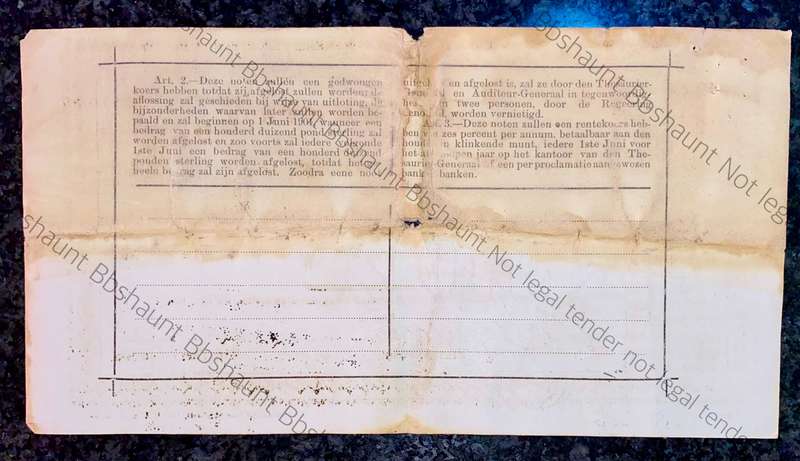 Art. 2.—Deze noten zullen een gedwongen
koers hebben totdat zij afgelost zullen worden; de
aflossing zal geschieden bij wijze van uitloting, de
bijzonderheden waarvan later zullen worden be-
paald en zal beginnen op 1 Juni 1901, wanneer een
bedrag van een honderd duizend pond sterling zal
worden afgelost en zoo voorts zal iedere volgende
1ste Juni een bedrag van een honderd duizend
ponden sterling worden afgelost, totdat het ge-
heele bedrag zal zijn afgelost. Zoodra eene noot
en afgelost is, zal ze door den Thesaurier-
en Auditeur-Generaal in tegenwoordig-
twee personen, door de Regeering
worden vernietigd.
Art. 3.—Deze noten zullen een rentekoers heb-
ben zes percent per annum, betaalbaar aan den
klinkende munt, iedere 1ste Juni voor
het jaar op het kantoor van den The-
saurier-Generaal een per proclamatie aangewezen
bank banken.
Bbshaunt Bbshaunt Not legal tender not legal tender
Bbshaunt Bbshaunt Bbshaunt Bbshaunt Not legal tender not legal tender
Bbshaunt Bbshaunt Bbshaunt Bbshaunt